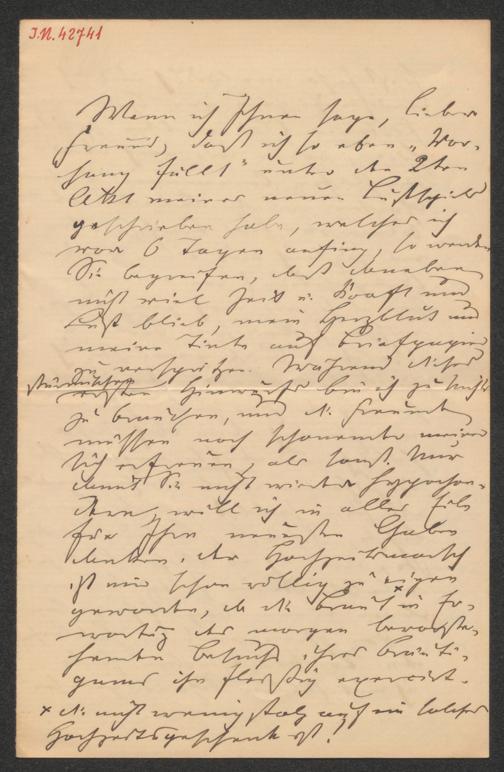 J.N. 42741
Wenn ich Ihnen sage, lieber
Freund, daß ich so eben „Vor-
hang fällt“ unter den 2ten
Akt meines neuen Lustspiels
geschrieben habe, welches ich
vor 6 Tagen anfing, so werden
Sie begreifen, daß daneben
nicht viel Zeit u. Kraft und
Lust blieb, mein Herzblut und
meine Tinte auf Briefpapier
zu verspritzen. Während dieses
ersten bin ich zu nichts
zu brauchen, und die Freunde
müssen noch schonender meiner
sich erfreuen, als sonst. Nur
damit Sie nicht wieder hypochon-
dern, will ich in aller Eile
für Ihre neueste Gabe
danken. Der Hochzeitsmarsch
ist mir schon völlig zu eigen
geworden, da die Braut x in Er-
wartung des morgen bevorste-
henden Besuchs ihres Bräuti-
gams ihn fleißig exercirt.
x die nicht wenig stolz auf ein solches
Hochzeitsgeschenk ist!